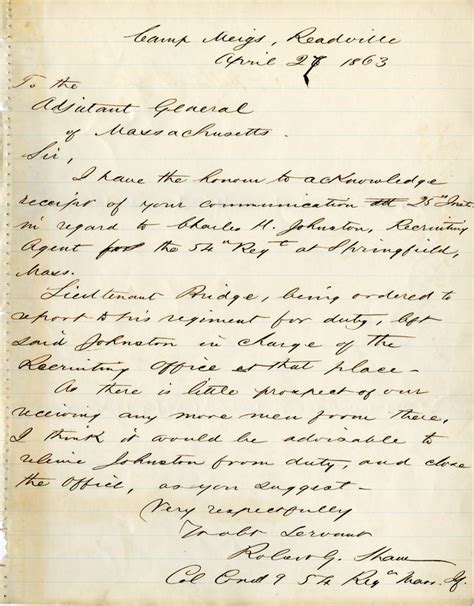 Camp Meigs, Readville
April 27 1863
To the
Adjutant General
of Massachusetts.
Sir,
I have the honour to acknowledge
receipt of your communication 25th Inst.
in regard to Charles H. Johnston, Recruiting
Agent for the 54th Regt at Springfield,
Mass.
Lieutenant Bridge, being ordered to
report to his regiment for duty, left
said Johnston in charge of the
Recruiting Office at that place—
As there is little prospect of our
receiving any more men from there,
I think it would be advisable to
relieve Johnston from duty, and close
the Office, as you suggest—
Very respectfully
Yr obt Servant
Robert G. Shaw
Col Comdg 54 Regt Mass. If.